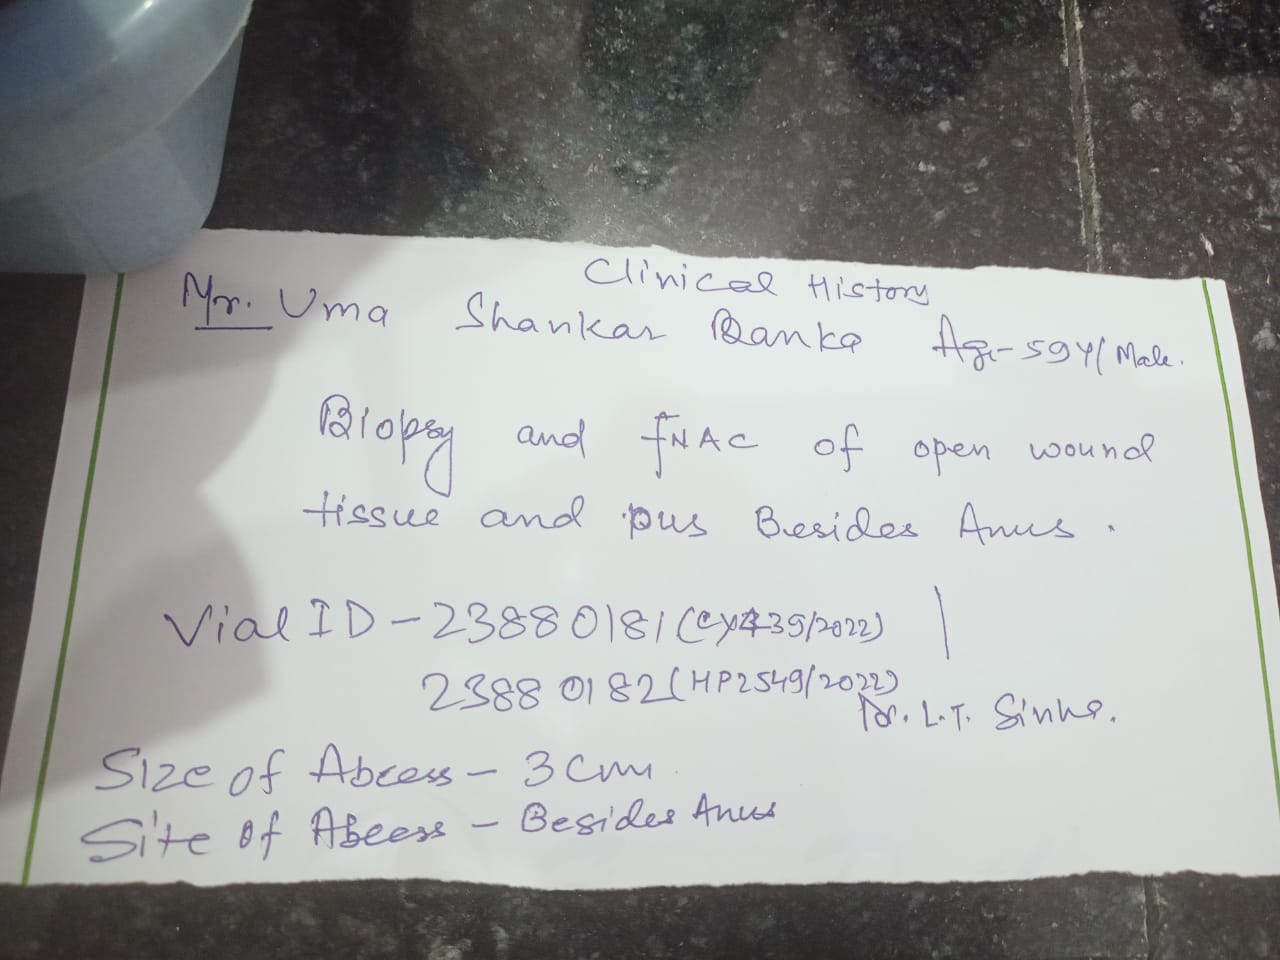 Clinical History
Mr. Uma Shankar Banka Age-59Y/Male.
Biopsy and FNAC of open wound
tissue and pus Besides Anus.
Vial ID-23880181(CY435/2022)
23880182(HP2549/2022)
Dr. L.T. Sinha.
Size of Abcess - 3 cm
Site of Abcess - Besides Anus